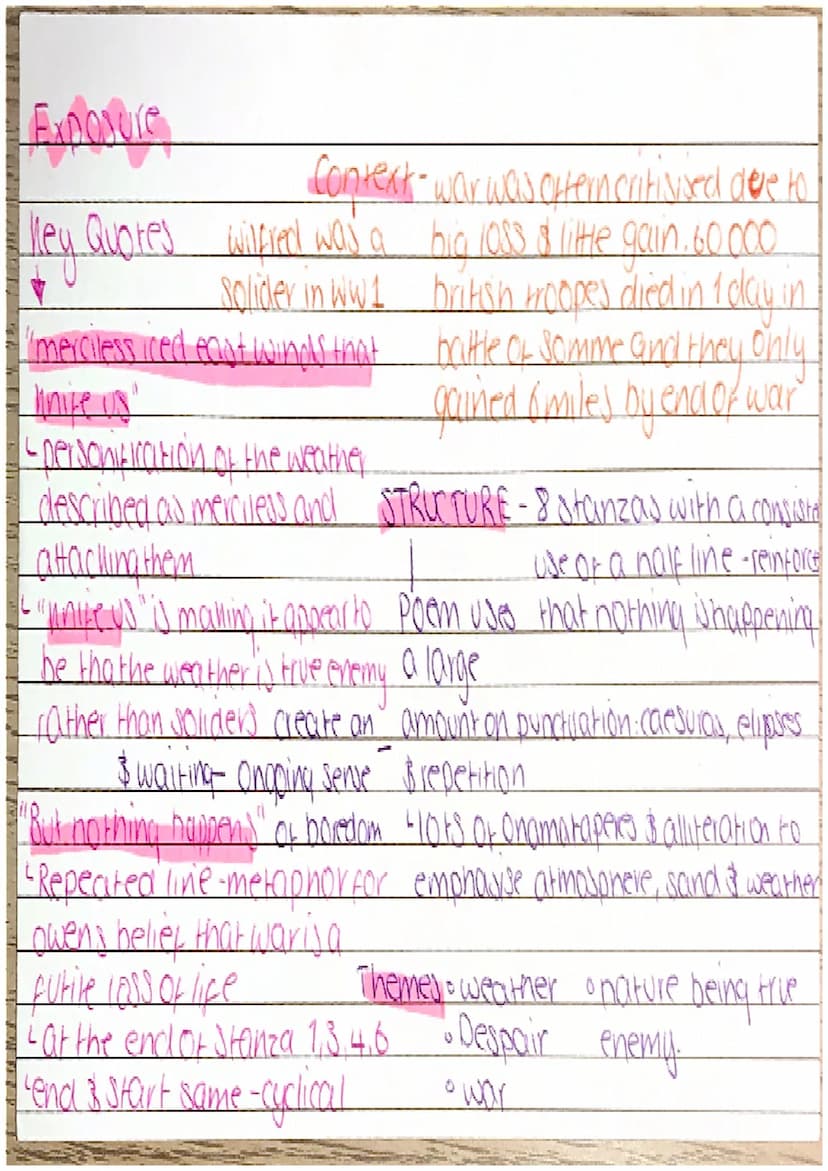 Exposure
Context - war was oftern critisised due to
big loss & little gain. 60 000
british troopes died in 1 day in
battle of Somme and they only
gained 6 miles by end of war
Key Quotes
wilfred was a
solider in WW1
"merciless iced east winds that
knife us"
personification of the weather
described as merciless and
attacking them
"knife us" is making it appear to
be tha the weather is true enemy
rather than soliders
STRUCTURE - 8 stanzas with a consiste
use of a half line - reinforc
that nothing is happening
Poem uses
a large
amount on punctuation: caesuras, elipses
& repetition
lots of onamataperes & alliteration to
emphasise atmosphere, sand & weather
create an
& waiting - ongoing sense
of boredom
"But nothing happens"
Repeated line - metaphor for
owens belief that war is a
futile loss of life
at the end of stanza 1,3,4,6
end & start same - cyclical
Themes • weather • nature being true
enemy.
• Despair
• war